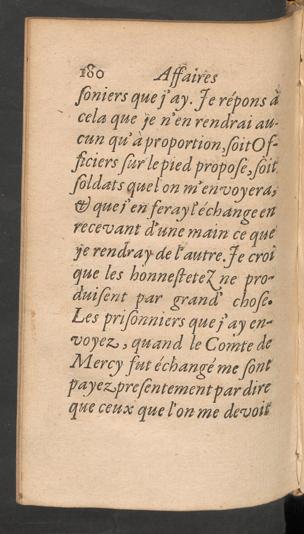 180 Affaires
ſoniers que j'ay. Je répons à
cela que je n'en rendrai au-
cun qu'à proportion, ſoit Of-
ficiers ſur le pied propoſe, ſoit
ſoldats quel on m'envoyera,
& que j'en feray l'échange en
recevant d'une main ce que
je rendray de l'autre. Je croi
que les honneſtetez ne pro-
duiſent par grand choſe.
Les priſonniers que j'ay en-
voyez, quand le Comte de
Mercy fut échangé me ſont
payez preſentement par dire
que ceux que l'on me devoit